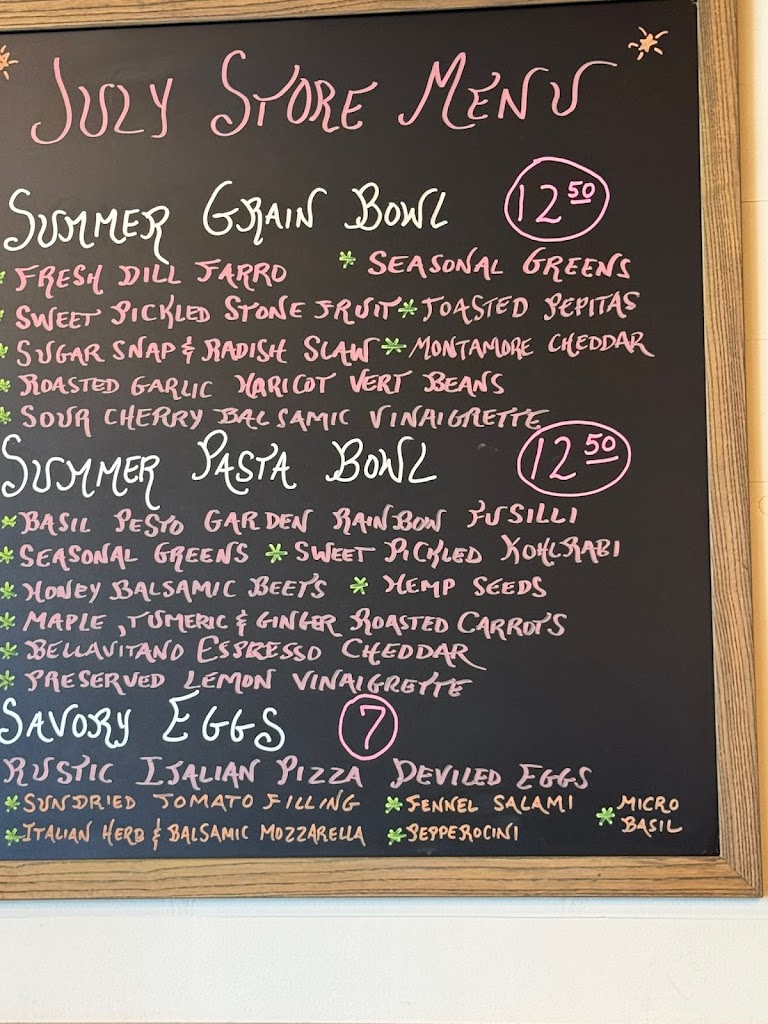 JULY STORE MENU
SUMMER GRAIN BOWL 12 50
* FRESH DILL FARRO * SEASONAL GREENS
* SWEET PICKLED STONE FRUIT * TOASTED PEPITAS
* SUGAR SNAP & RADISH SLAW * MONTAMORE CHEDDAR
* ROASTED GARLIC HARICOT VERT BEANS
* SOUR CHERRY BALSAMIC VINAIGRETTE
SUMMER PASTA BOWL 12 50
* BASIL PESTO GARDEN RAINBOW FUSILLI
* SEASONAL GREENS * SWEET PICKLED KOHLRABI
* HONEY BALSAMIC BEETS * HEMP SEEDS
* MAPLE, TUMERIC & GINGER ROASTED CARROTS
* BELLAVITANO ESPRESSO CHEDDAR
* PRESERVED LEMON VINAIGRETTE
SAVORY EGGS 7
RUSTIC ITALIAN PIZZA DEVILED EGGS
* SUNDRIED TOMATO FILLING * FENNEL SALAMI * MICRO BASIL
* ITALIAN HERB & BALSAMIC MOZZARELLA * PEPPEROCINI